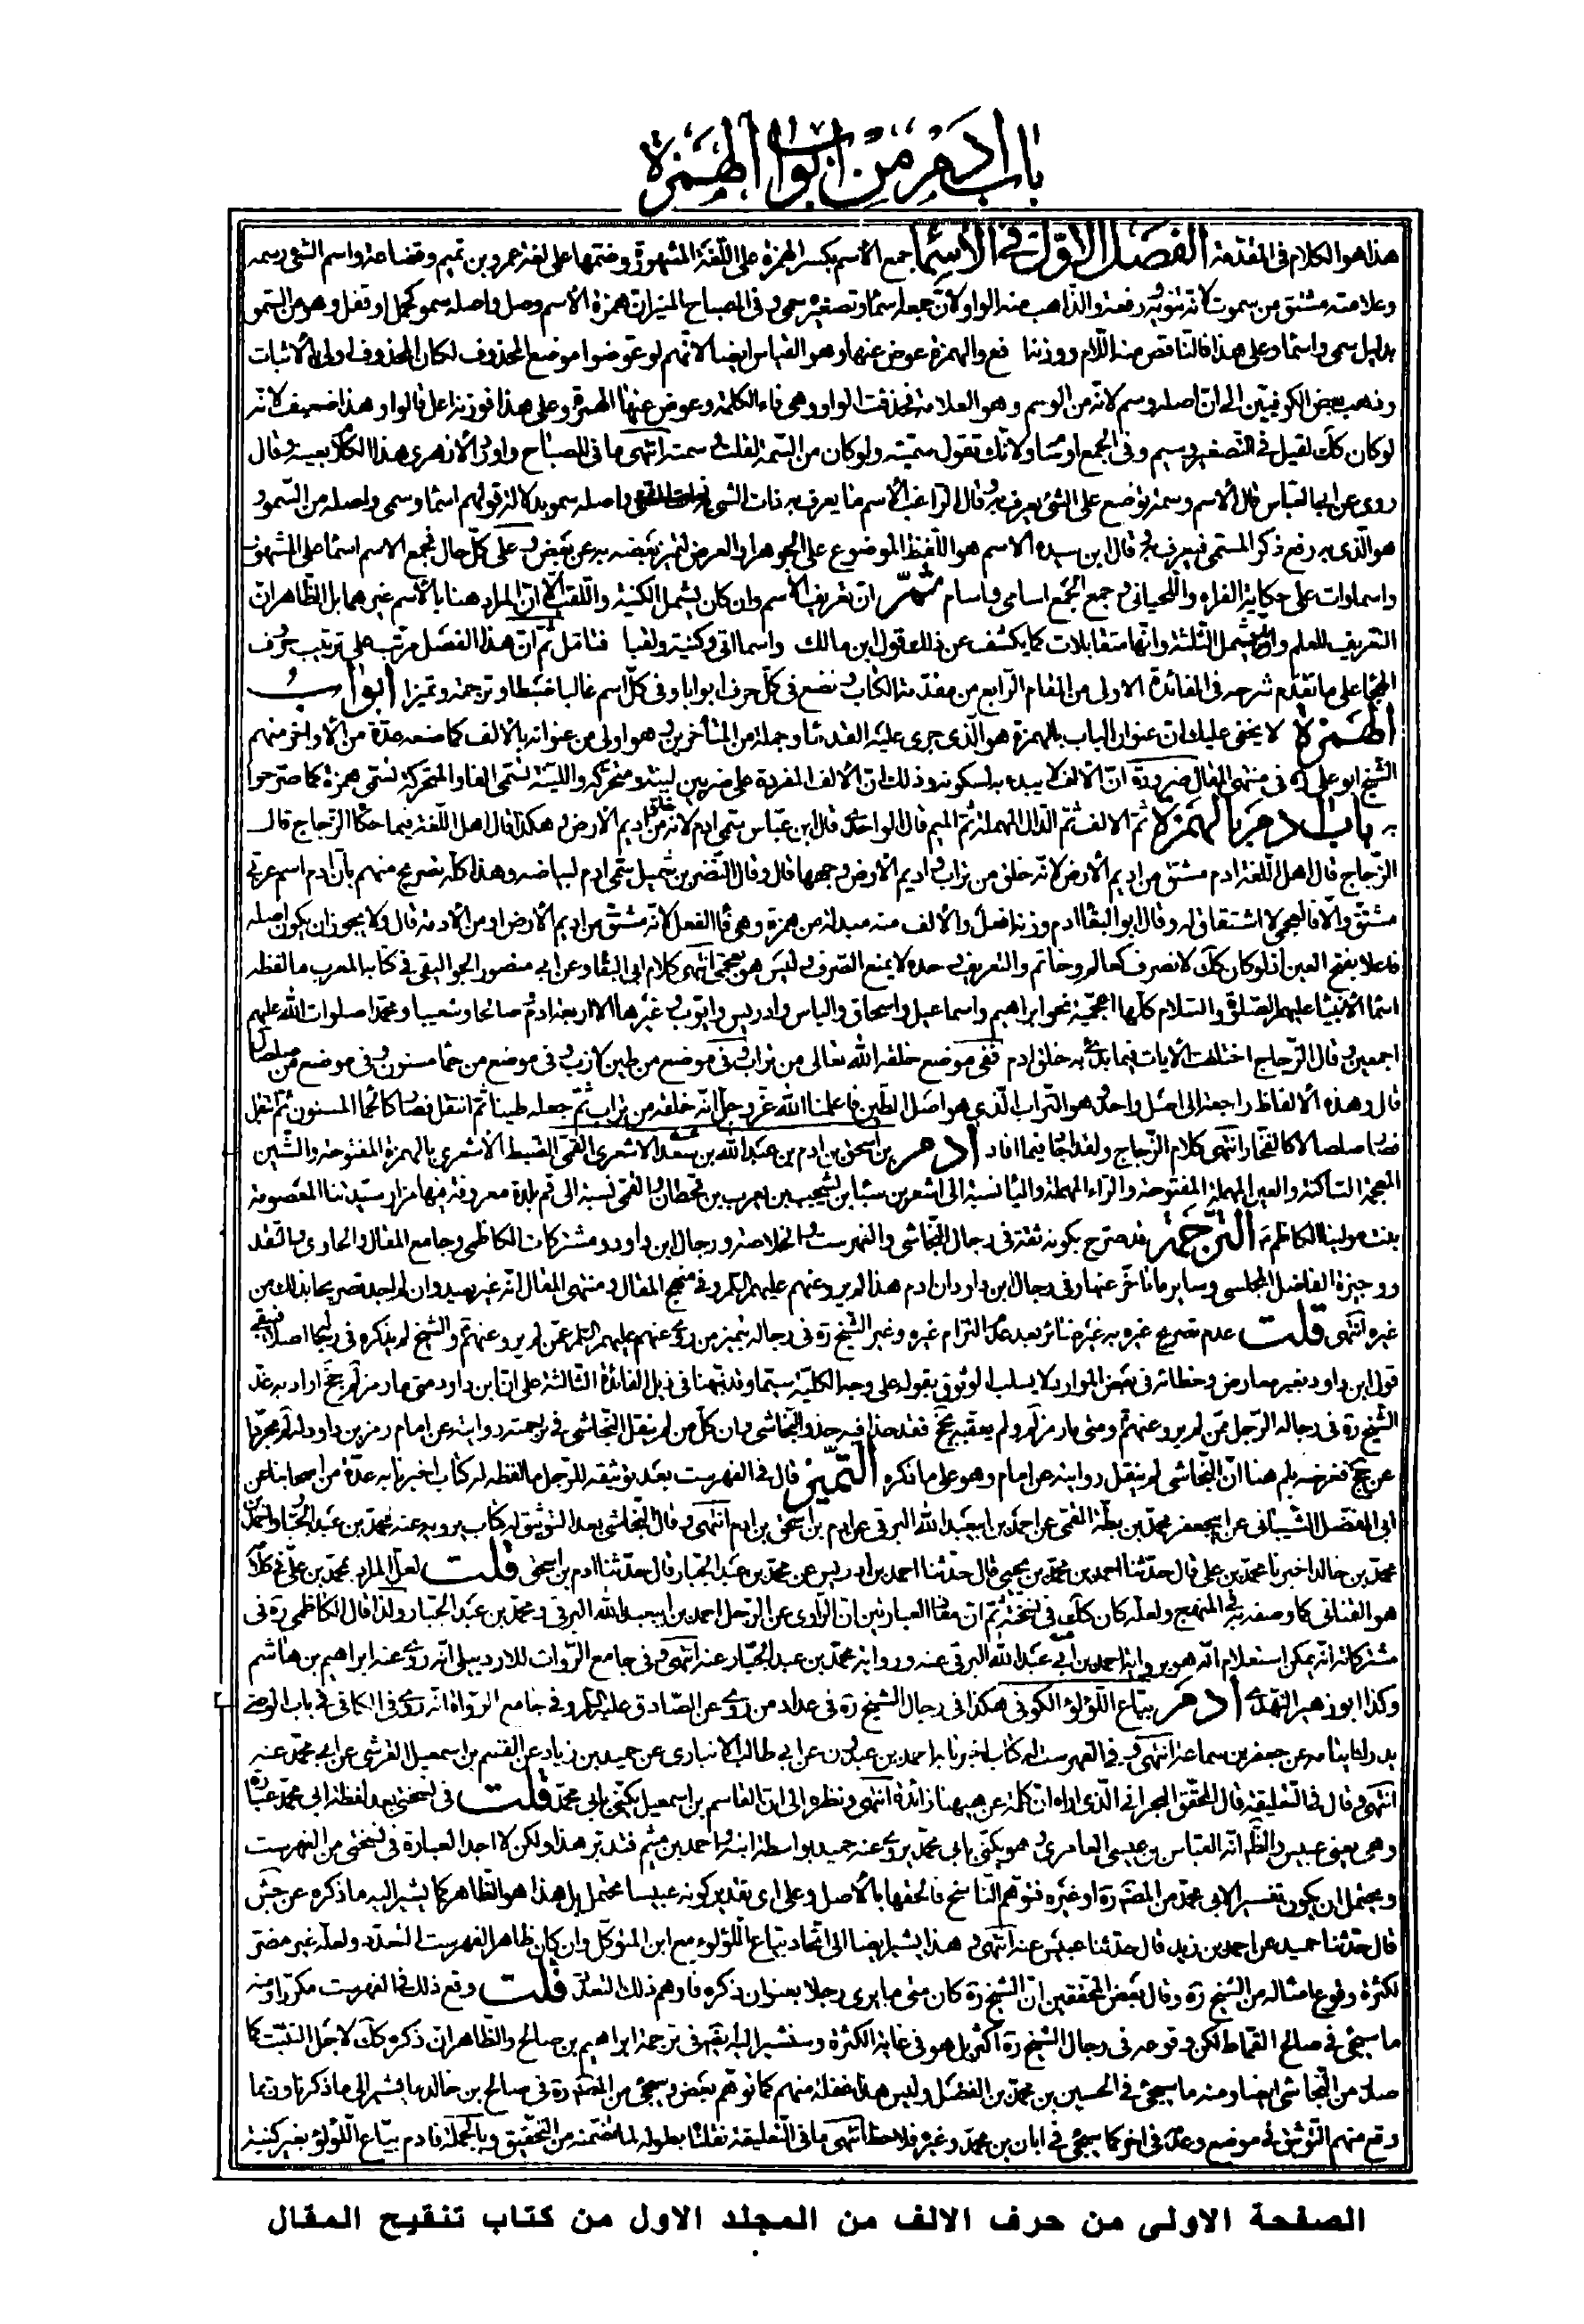 باب ادم من ابواب الهمزة
هذا هو الكلام فى المقدمة الفصل الاول فى الاسما جمع الأسم بكسر الهمزة على اللغة المشهورة وضمها على لغة عمرو بن تميم وقضاعة واسم الشئ رسمه
وعلامته مشتق من سموت لانه تنويه ورفعة والذاهب منه الواو لان جمعه اسما وتصغيره سمى وفى المصباح المنير ان همزة الاسم وصل واصله سمو كحمل او قفل وهو من السمو
بدليل سمى واسما وعلى هذا فالناقص منه اللام ووزنها فع والهمزة عوض عنها وهو القياس ايضا لانهم لو عوضوا موضع المحذوف لكان المحذوف اولى بالاثبات
وذهب بعض الكوفيين الى ان اصله وسم لانه من الوسم وهو العلامة فحذفت الواو وهى فاء الكلمة وعوض عنها الهمزة وعلى هذا فوزنه اعل قالوا وهذا ضعيف لانه
لو كان كك لقيل فى التصغير وسيم وفى الجمع اوسام ولانك تقول سميته ولو كان من السمة لقلت وسمته انتهى ما فى المصباح واورد الازهرى هذا الكلام بعينه وقال
روى عن ابى العباس قال الاسم وسمة توضع على الشئ يعرف به وقال الراغب الأسم ما يعرف به ذات الشى واصله سمو بدلالة قولهم اسما وسمى واصله من السمو و
هو الذى به رفع ذكر المسمى فيعرف به وقال ابن سيده الاسم هو اللفظ الموضوع على الجوهر او العرض لتميز بعضه به عن بعض وعلى كل حال فجمع الاسم اسما على المشهور
واسماوات على حكاية الفراء واللحيانى وجمع الجمع اسامى واسام ثم ان تعريف الأسم وان كان يشمل الكنية واللقب الا ان المراد هنا بالأسم غيرهما بل الظاهر ان
التعريف للعلم وانه يشمل الثلثة وانها متقابلات كما يكشف عن ذلك قول ابن مالك واسما اتى وكنية ولقبا فتامل ثم ان هذا الفصل مرتب على ترتيب حروف
الهجا على ما تقدم شرحه فى الفائدة الاولى من المقام الرابع من مقدمة الكتاب ونضع فى كل حرف ابوابا وفى كل اسم غالبا ضبطا وترجمة وتميزا ابواب
الهمزة لا يخفى عليك ان عنوان الباب بالهمزة هو الذى جرى عليه القدما وجملة من المتأخرين وهو اولى من عنوانه بالالف كما صنعه عدة من الأواخر منهم
الشيخ ابو على ره فى منتهى المقال ضرورة ان الالف لا يبدء به لسكونه وذلك ان الالف المفردة على ضربين لينة ومتحركة واللينة تسمى الفا والمتحركة تسمى همزة كما صرحوا
به باب ادم بالهمزة ثم الالف ثم الدال المهملة ثم الميم قال الواحدى قال ابن عباس سمى ادم لانه خلق من اديم الأرض وهكذا قال اهل اللغة فيما حكاه الزجاج قال
الزجاج قال اهل اللغة ادم مشتق من اديم الأرض لانه خلق من تراب واديم الأرض وجهها قال وقال النضر بن شميل سمى ادم لبياضه وهذا كله تصريح منهم بان ادم اسم عربى
مشتق والا فالعجمى لا اشتقاق له وقال ابو البقاء ادم وزنه افعل والألف منه مبدلة من همزة وهى فا الفعل لانه مشتق من اديم الأرض او من الأدمة قال ولا يجوز ان يكون اصله
فاعلا بفتح العين اذ لو كان كك لانصرف كعالم وخاتم والتعريف وحده لا يمنع الصرف وليس هو بعجمى انتهى كلام ابى البقا وعن ابى منصور الجواليقى فى كتابه المعرب ما لفظه
اسما الأنبيا عليهم الصلوة والسلام كلها اعجمية نحو ابراهيم واسماعيل واسحاق والياس وادريس وايوب وغيرها الا اربعة ادم وصالحا وشعيبا ومحمدا صلوات الله عليهم
اجمعين وقال الزجاج اختلفت الآيات فيما بدئ به خلق ادم ففى موضع خلقه الله تعالى من تراب وفى موضع من طين لازب وفى موضع من حما مسنون وفى موضع من صلصال
قال وهذه الألفاظ راجعة الى اصل واحد وهو التراب الذى هو اصل الطين فاعلمنا الله عز وجل انه خلقه من تراب ثم جعله طينا ثم انتقل فصار كالحما المسنون ثم انتقل
فصار صلصالا كالفخار انتهى كلام الزجاج ولقد اجا فيما افاد ادم بن اسحق بن ادم بن عبد الله بن سعد الاشعرى القمى الضبط الأشعرى بالهمزة المفتوحة والشين
المعجمة الساكنة والعين المهملة المفتوحة والراء المهملة واليا نسبة الى اشعر بن سبا بن يشجب بن يعرب بن قحطان والقمى نسبة الى قم بلدة معروفة فيها مزار سيدتنا المعصومة
بنت مولينا الكاظم ع الترجمة قد صرح بكونه ثقة فى رجال النجاشى والفهرست والخلاصة ورجال ابن داود ومشتركات الكاظمى وجامع المقال والحاوى والنقد
ووجيزة الفاضل المجلسى وساير ما تاخر عنها وفى رجال ابن داود ان ادم هذا لم يرو عنهم عليهم السلام وفى منهج المقال ومنتهى المقال انه غير بعيد وان لم اجد تصريحا بذلك من
غيره انتهى قلت عدم تصريح غيره به غير ضائر بعد عدم التزام غيره وغير الشيخ ره فى رجاله بتميز من روى عنهم عليهم السلم عمن لم يرو عنهم ع والشيخ لم يذكره فى رجاله اصلا فيبقى
قول ابن داود بغير معارض وخطائه فى بعض الموارد لا يسلب الوثوق بقوله على وجه الكلية سيما وقد نبهنا فى ذيل الفائدة الثالثة على ان ابن داود متى ما رمز لم جخ اراد به عد
الشيخ ره فى رجاله الرجل ممن لم يرو عنهم ع ومتى ما رمز لم ولم يعقبه بجخ فقد حذا فيه حذو النجاشى وان كل من لم ينقل النجاشى فى ترجمته رواية عن امام رمز بن داود له لم مجردا
عن جخ فغرضه بلم هنا ان النجاشى لم ينقل روايته عن امام وهو على ما ذكره التميز قال فى الفهرست بعد توثيقه للرجل ما لفظه له كتاب اخبرنا به عدة من اصحابنا عن
ابى المفضل الشيبانى عن ابى جعفر محمد بن بطة القمى عن احمد بن ابى عبد الله البرقى عن ادم بن اسحق بن ادم انتهى وقال النجاشى بعد التوثيق له كتاب يرويه عنه محمد بن عبد الجبار واحمد بن
محمد بن خالد اخبرنا محمد بن على قال حدثنا احمد بن محمد بن يحيى قال حدثنا احمد بن ادريس عن محمد بن عبد الجبار قال حدثنا ادم بن اسحق قلت لعل المراد بمحمد بن على فى كلامه
هو القنانى كما وصفه به فى المنهج ولعله كان كك فى نسخته ثم ان مفاد العبارتين ان الراوى عن الرجل احمد بن ابى عبد الله البرقى ومحمد بن عبد الجبار ولذا قال الكاظمى ره فى
مشتركاته انه يمكن استعلام انه هو برواية احمد بن ابى عبد الله البرقى عنه ورواية محمد بن عبد الجبار عنه انتهى وفى جامع الروات للاردبيلى انه روى عنه ابراهيم بن هاشم
وكذا ابو زهير النهدى ادم بياع اللؤلؤ الكوفى هكذا فى رجال الشيخ ره فى عداد من روى عن الصادق عليه السلام وفى جامع الرواة انه روى فى الكافى فى باب الرضى
انتهى وقال فى التعليقة قال المحقق البحرانى الذى اراه ان كلمة عن هيهنا زائدة انتهى ونظره الى ان القاسم بن اسمعيل يكنى بابى محمد قلت فى نسختى بعد لفظة ابى محمد عبارة
وهى يعنى عبيس والظ انه العباس بن عيسى العامرى وهو يكنى بابى محمد يروى عنه حميد بواسطة ابنه واحمد بن ميثم فتدبر هذا ولكن لا اجد العبارة فى نسختى من الفهرست
ويحتمل ان يكون تفسير الابى محمد من المصنف ره او غيره فتوهم الناسخ فالحقها بالأصل وعلى اى تقدير كونه عبيسا محتمل بل هذا هو الظاهر كما يشير اليه ما ذكره عن جش
قال حدثنا حميد عن احمد بن زيد قال حدثنا عبيس عنه انتهى وهذا يشير ايضا الى اتحاد بياع اللؤلوء مع ابن المتوكل وان كان ظاهر الفهرست التعدد ولعله غير مضر
لكثرة وقوع امثاله من الشيخ ره وقال بعض المحققين ان الشيخ ره كان متى ما يرى رجلا بعنوان ذكره فاوهم ذلك التعدد قلت وقع ذلك فى الفهرست مكررا ومنه
ما سيجئ فى صالح القماط لكن وقوعه فى رجال الشيخ ره اكثر بل هو فى غاية الكثرة وسنشير اليه ايضا فى ترجمة ابراهيم بن صالح والظاهر ان ذكره كك لاجل التثبت كما
صدر من النجاشى ايضا ومنه ما سيجئ فى الحسين بن محمد بن الفضل وليس هذا غفلة منهم كما توهم بعض وسيجئ من المصنف ره فى صالح بن خالد ما يشير الى ما ذكرنا وربما
وقع منهم التوثيق فى موضع وعدمه فى اخر كما سيجئ فى ابان بن محمد وغيره فلاحظ انتهى ما فى التعليقة نقلناه بطوله لما تضمنه من التحقيق وبالجملة فادم بياع اللؤلؤ بغير كنية
الصفحة الاولى من حرف الالف من المجلد الاول من كتاب تنقيح المقال